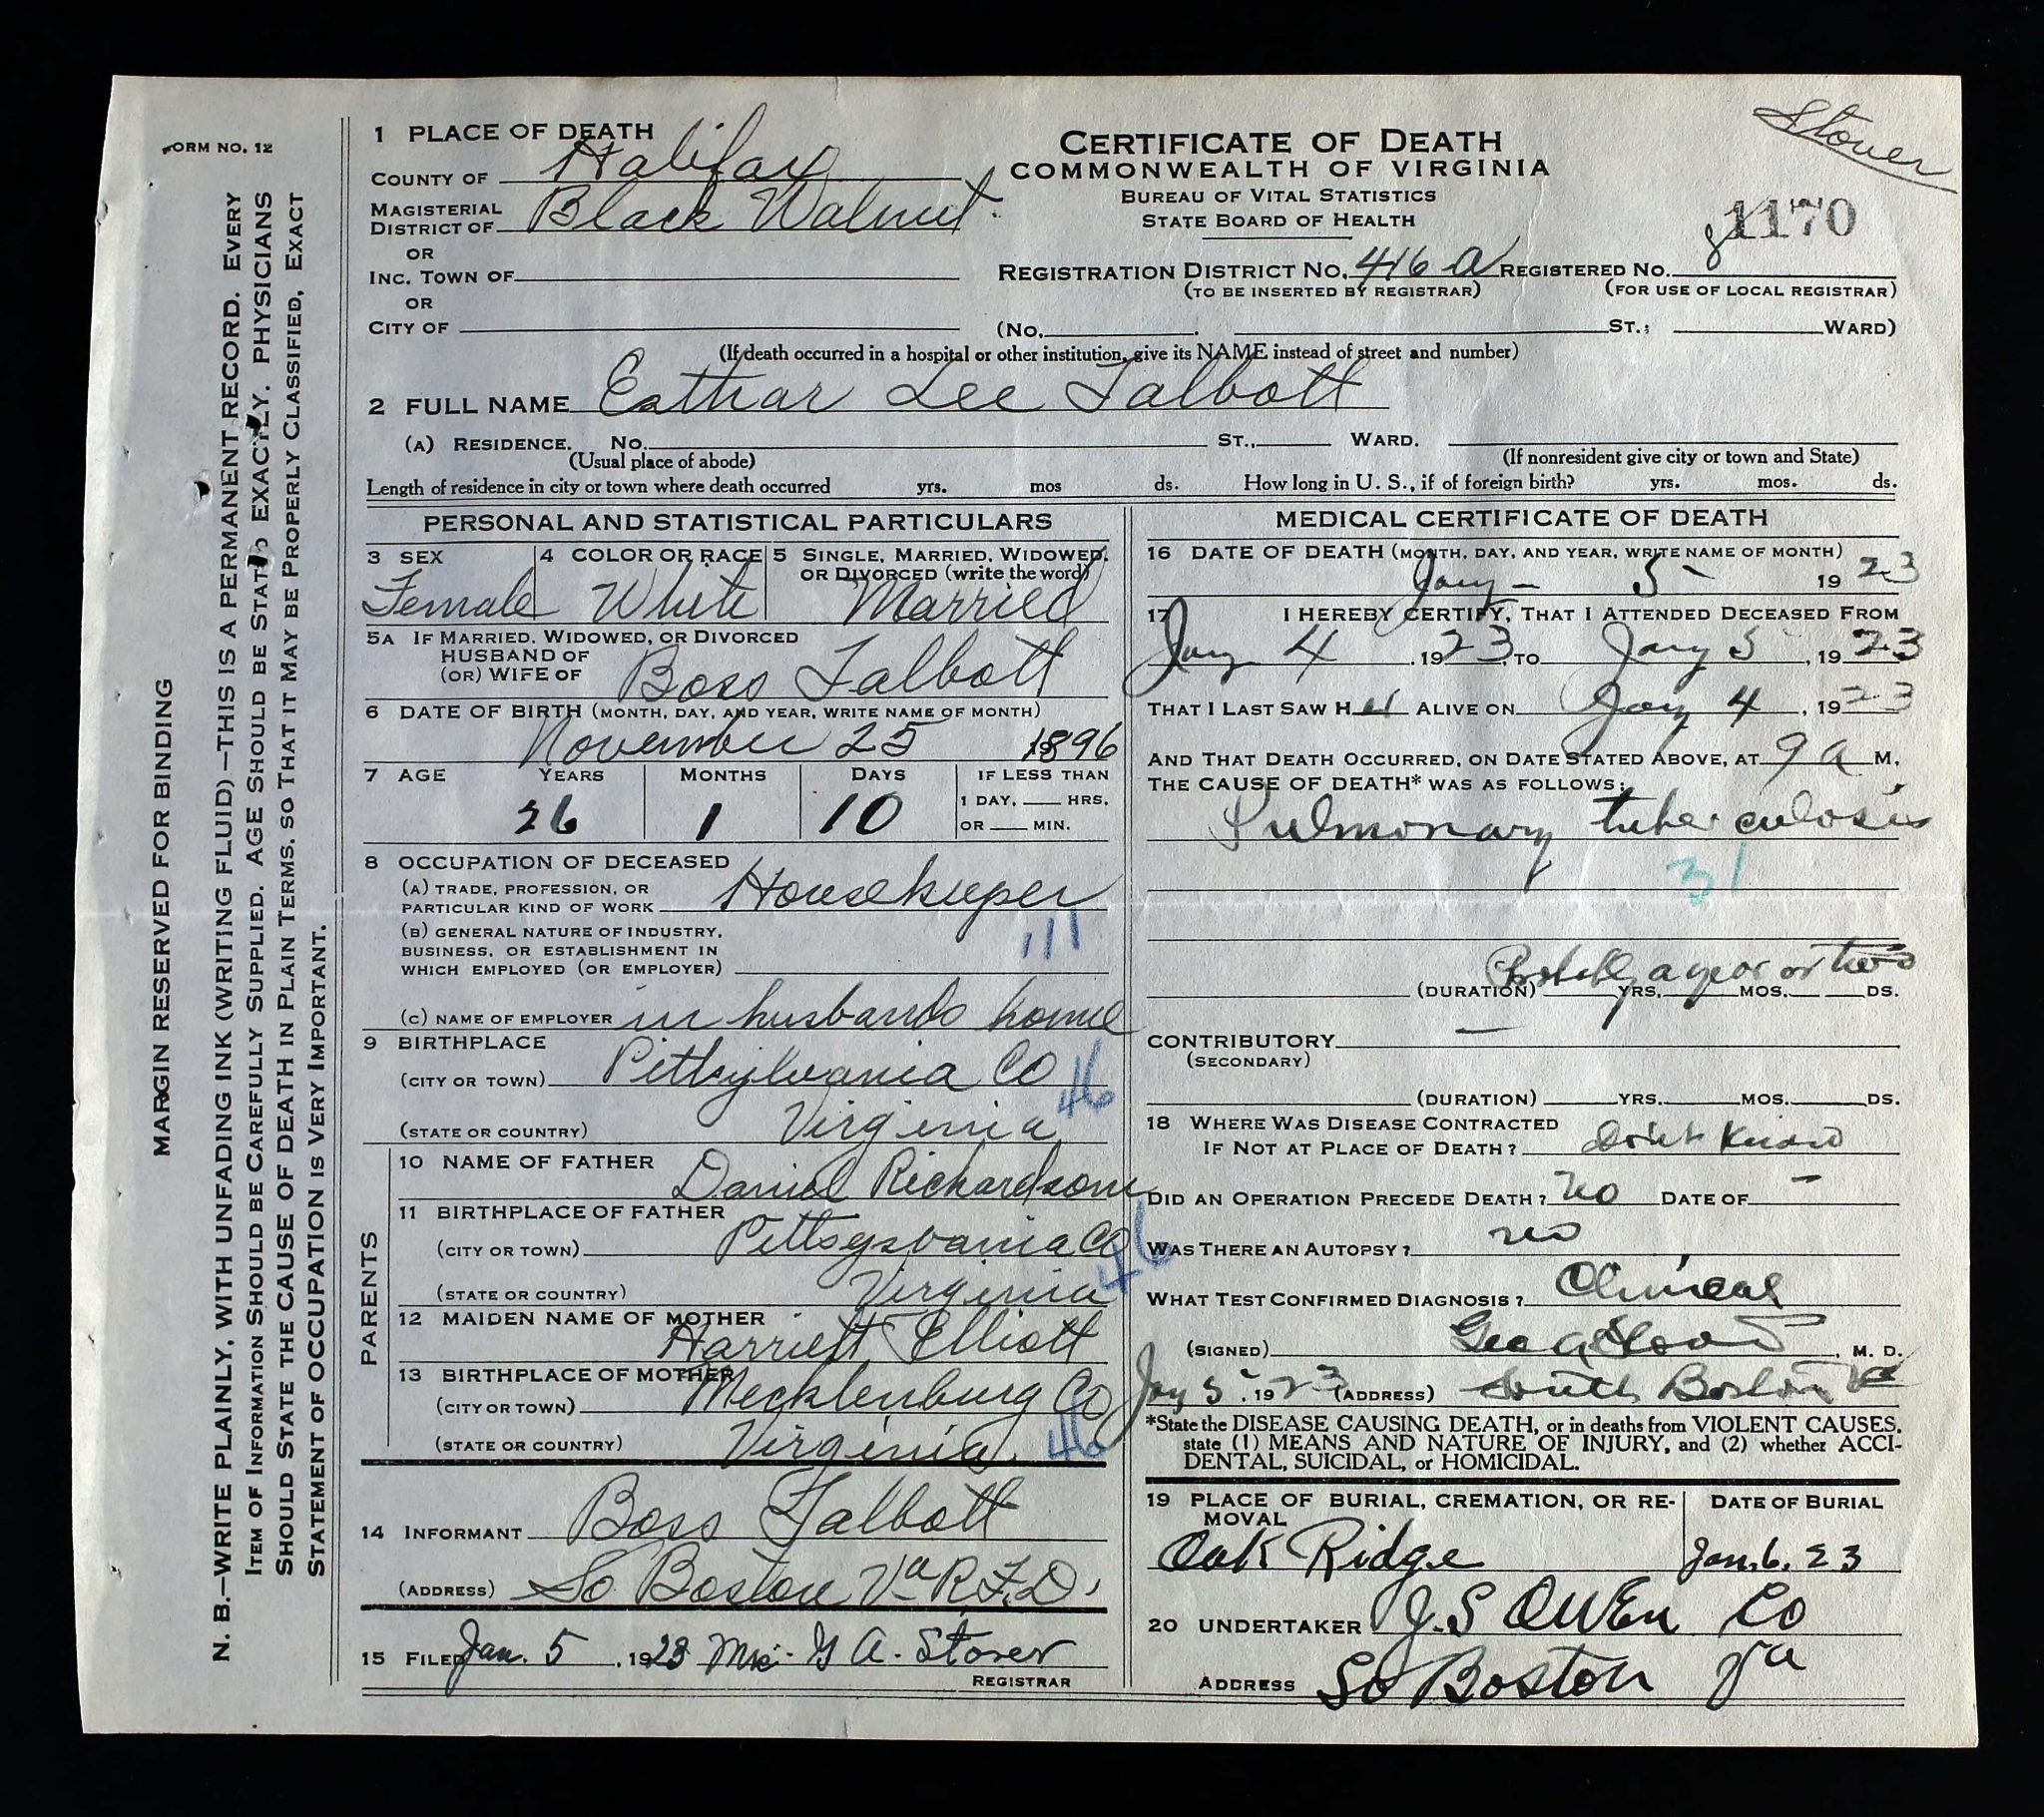 Stover
FORM NO. 12
MARGIN RESERVED FOR BINDING
N. B.—WRITE PLAINLY, WITH UNFADING INK (WRITING FLUID)—THIS IS A PERMANENT RECORD. EVERY
ITEM OF INFORMATION SHOULD BE CAREFULLY SUPPLIED. AGE SHOULD BE STATED EXACTLY. PHYSICIANS
SHOULD STATE THE CAUSE OF DEATH IN PLAIN TERMS, SO THAT IT MAY BE PROPERLY CLASSIFIED. EXACT
STATEMENT OF OCCUPATION IS VERY IMPORTANT.
CERTIFICATE OF DEATH
COMMONWEALTH OF VIRGINIA
BUREAU OF VITAL STATISTICS
STATE BOARD OF HEALTH
1170
1 PLACE OF DEATH
COUNTY OF Halifax
MAGISTERIAL DISTRICT OF Black Walnut
OR
INC. TOWN OF
OR
CITY OF
REGISTRATION DISTRICT NO. 416 a REGISTERED NO. 8
(TO BE INSERTED BY REGISTRAR) (FOR USE OF LOCAL REGISTRAR)
(NO. ST.; WARD)
(If death occurred in a hospital or other institution, give its NAME instead of street and number)
2 FULL NAME Eathar Lee Talbott
(A) RESIDENCE. NO. ST., WARD.
(Usual place of abode) (If nonresident give city or town and State)
Length of residence in city or town where death occurred yrs. mos ds. How long in U. S., if of foreign birth? yrs. mos. ds.
PERSONAL AND STATISTICAL PARTICULARS
3 SEX 4 COLOR OR RACE 5 SINGLE, MARRIED, WIDOWED,
OR DIVORCED (write the word)
Female White Married
5A IF MARRIED, WIDOWED, OR DIVORCED
HUSBAND OF
(OR) WIFE OF Boss Talbott
6 DATE OF BIRTH (MONTH, DAY, AND YEAR, WRITE NAME OF MONTH)
November 25 1896
7 AGE YEARS MONTHS DAYS IF LESS THAN
1 DAY, HRS.
26 1 10 OR MIN.
8 OCCUPATION OF DECEASED
(A) TRADE, PROFESSION, OR
PARTICULAR KIND OF WORK Housekeeper
111
(B) GENERAL NATURE OF INDUSTRY,
BUSINESS, OR ESTABLISHMENT IN
WHICH EMPLOYED (OR EMPLOYER)
(C) NAME OF EMPLOYER in husbands home
9 BIRTHPLACE
(CITY OR TOWN) Pittsylvania Co 46
(STATE OR COUNTRY) Virginia
PARENTS
10 NAME OF FATHER Daniel Richardson
11 BIRTHPLACE OF FATHER
(CITY OR TOWN) Pittsysvania Co 46
(STATE OR COUNTRY) Virginia
12 MAIDEN NAME OF MOTHER
Harriett Elliott
13 BIRTHPLACE OF MOTHER
(CITY OR TOWN) Mecklenburg Co
(STATE OR COUNTRY) Virginia 46
14 INFORMANT Boss Talbott
(ADDRESS) So Boston Va R.F.D.
15 FILED Jan. 5, 1923 Mrs. G A. Stover
REGISTRAR
MEDICAL CERTIFICATE OF DEATH
16 DATE OF DEATH (MONTH, DAY, AND YEAR, WRITE NAME OF MONTH)
Jany - 5 - 1923
17 I HEREBY CERTIFY, THAT I ATTENDED DECEASED FROM
Jany 4, 1923, TO Jany 5, 1923
THAT I LAST SAW Her ALIVE ON Jany 4, 1923
AND THAT DEATH OCCURRED, ON DATE STATED ABOVE, AT 9 a M.
THE CAUSE OF DEATH* WAS AS FOLLOWS:
Pulmonary tuberculosis
31
Probably a year or two
(DURATION) YRS. MOS. DS.
CONTRIBUTORY —
(SECONDARY)
(DURATION) YRS. MOS. DS.
18 WHERE WAS DISEASE CONTRACTED
IF NOT AT PLACE OF DEATH? Don't Know
DID AN OPERATION PRECEDE DEATH? no DATE OF -
WAS THERE AN AUTOPSY? no
WHAT TEST CONFIRMED DIAGNOSIS? Clinical
(SIGNED) Geo A Stover, M. D.
Jany 5, 1923 (ADDRESS) South Boston Va
*State the DISEASE CAUSING DEATH, or in deaths from VIOLENT CAUSES,
state (1) MEANS AND NATURE OF INJURY, and (2) whether ACCI-
DENTAL, SUICIDAL, or HOMICIDAL.
19 PLACE OF BURIAL, CREMATION, OR RE-
MOVAL DATE OF BURIAL
Oak Ridge Jan. 6, 23
20 UNDERTAKER J.S OWEn Co
ADDRESS So Boston Va